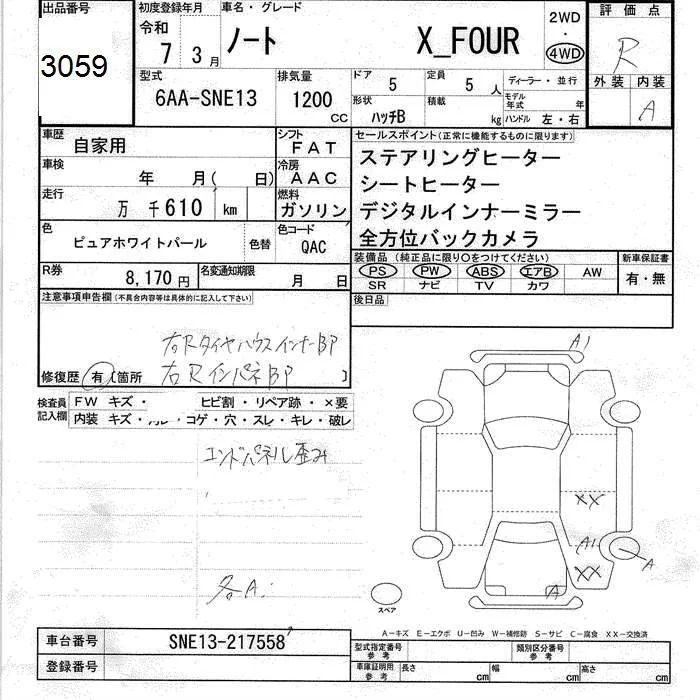 出品番号
3059
初度登録年月
令和 7 3月
車名・グレード
ノート X_FOUR
2WD
・
4WD
評価点
R
外装 内装
A
型式
6AA-SNE13
排気量
1200 CC
ドア 5
定員 5 人
ディーラー・並行
形状 ハッチB
積載 kg
モデル年式 年
ハンドル 左・右
車歴 自家用
シフト FAT
車検 年 月( 日)
冷房 AAC
走行 万 千610 km
燃料 ガソリン
色 ピュアホワイトパール
色替
色コード QAC
R券 8,170円
名変通知期限 月 日
セールスポイント(正常に機能するものに限ります)
ステアリングヒーター
シートヒーター
デジタルインナーミラー
全方位バックカメラ
装備品 (純正品に限り○をつけてください)
PS PW ABS エアB AW
SR ナビ TV カワ
新車保証書
有・無
後日品
注意事項申告欄(不具合内容等は具体的に記入して下さい)
右Rタイヤハウスインナー BP
右Rインパネ BP
修復歴 有 [箇所 ]
検査員記入欄
FW キズ・ ヒビ割・リペア跡・×要
内装 キズ・ コゲ・穴・スレ・キレ・破レ
エンドパネル歪み
各A.
A1
XX
A1
A
XX
A
スペア
A−キズ E−エクボ U−凹み W−補修跡 S−サビ C−腐食 XX−交換済
車台番号 SNE13-217558
登録番号
型式指定番号参考
類別区分番号参考
車庫証明用参考 長さ cm 幅 cm 高さ cm